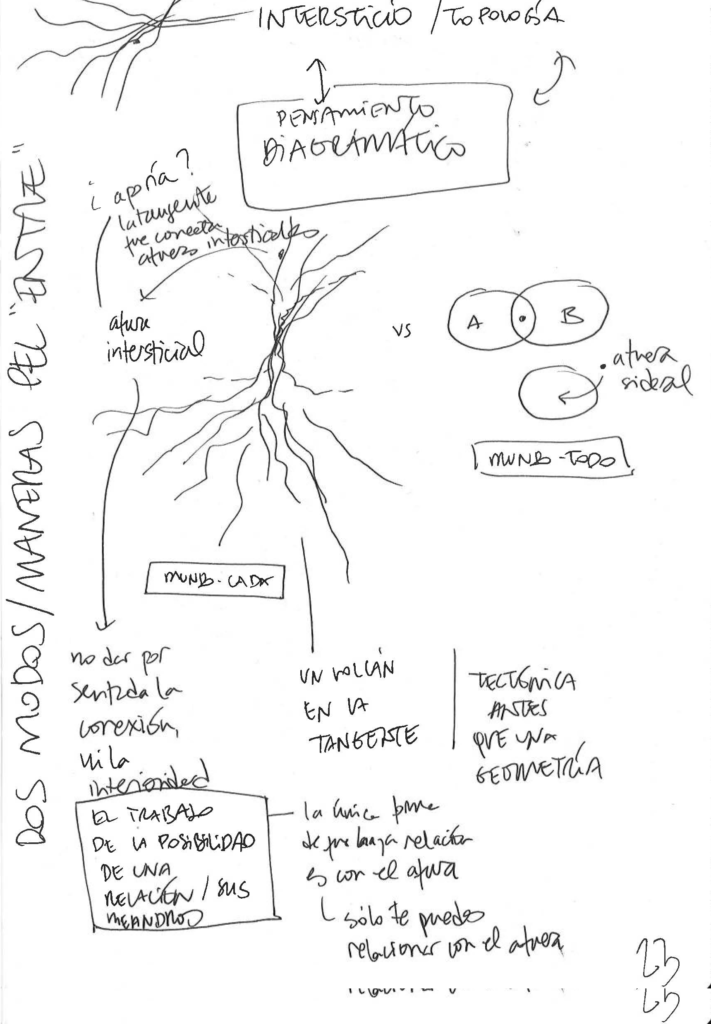 INTERSTICIO / TOPOLOGÍA
PENSAMIENTO
DIAGRAMÁTICO
DOS MODOS/MANERAS DEL "ENTRE"
¿aporía?
la tangente
que conecta
afueras intersticiales
afuera
intersticial
vs
A
B
afuera
sideral
MUNDO-TODO
MUNDO-CADA
no dar por
sentada la
conexión,
ni la
interioridad
UN VOLCÁN
EN LA
TANGENTE
TECTÓNICA
ANTES
QUE UNA
GEOMETRÍA
EL TRABAJO
DE LA POSIBILIDAD
DE UNA
RELACIÓN / SUS
MEANDROS
la única
de que haya relación
es con el afuera
sólo te puedes
relacionar con el afuera
23
25